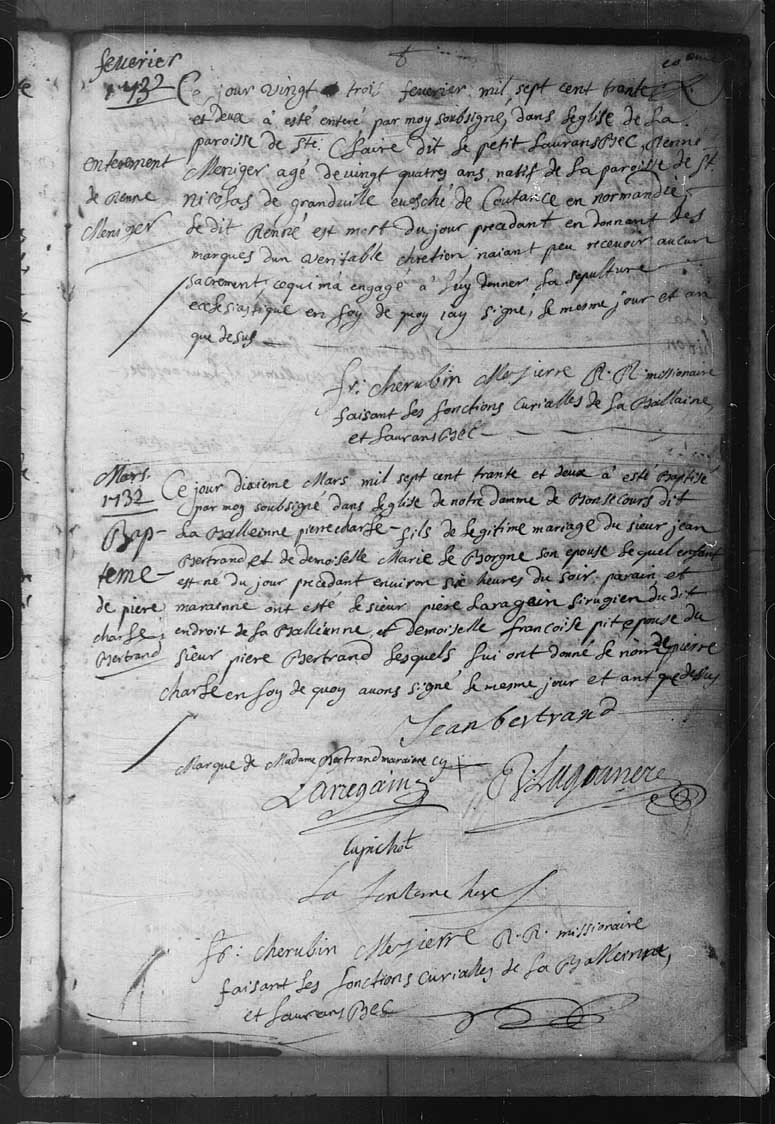 feuerier
1732
Ce jour vingt trois feuerier mil sept cent trante
et deux à esté enteré par moy soubsigné, dans leglise de La
paroisse de Ste. Claire dit le petit LauransBec, Renne
enterement
de Renne
Meniger
Meniger agé de vingt quatres ans natif de La paroisse de St.
nicolas de grandville evesché de Coutance en normandie,
Le dit Renné est mort du jour precedant en donnant des
marques dun veritable chretien naiant peu recevoir aucun
sacrement ce qui m'a engagé a Luy donner La sepulture
ecclesiastique en foy de quoy jay signé, le mesme jour et an
que desus
fr. cherubin Mesierre R. R. missionaire
faisant Les fonctions Curialles de La Ballaine,
et LauransBec
Mars.
1732
Bap-
teme
de piere
charle
Bertrand
Ce jour dixieme Mars mil sept cent trante et deux à esté Baptisé
par moy soubsigné dans leglise de notre damme de Bonsecours dit
La Balleinne pierre charle fils de Legitime mariage du sieur jean
Bertrand et de demoiselle Marie Le Borgne son epouse Lequel enfant
est né du jour precedant environ six heures du soir. parain et
marainne ont esté Le sieur piere Laragein sirugien du dit
endroit de La Balleinne, et demoiselle francoise pit epouse du
sieur piere Bertrand Lesquels Lui ont donné Le nom de pierre
charle en foy de quoy avons signé Le mesme jour et ant que desus
Jean bertrand
Marque de Madame Bertrand maraine cy +
Larregain
Lupichot
La fontene
fr: cherubin Mesierre R. R. missionaire
faisant Les fonctions Curialles de La Balleinne,
et LauransBec